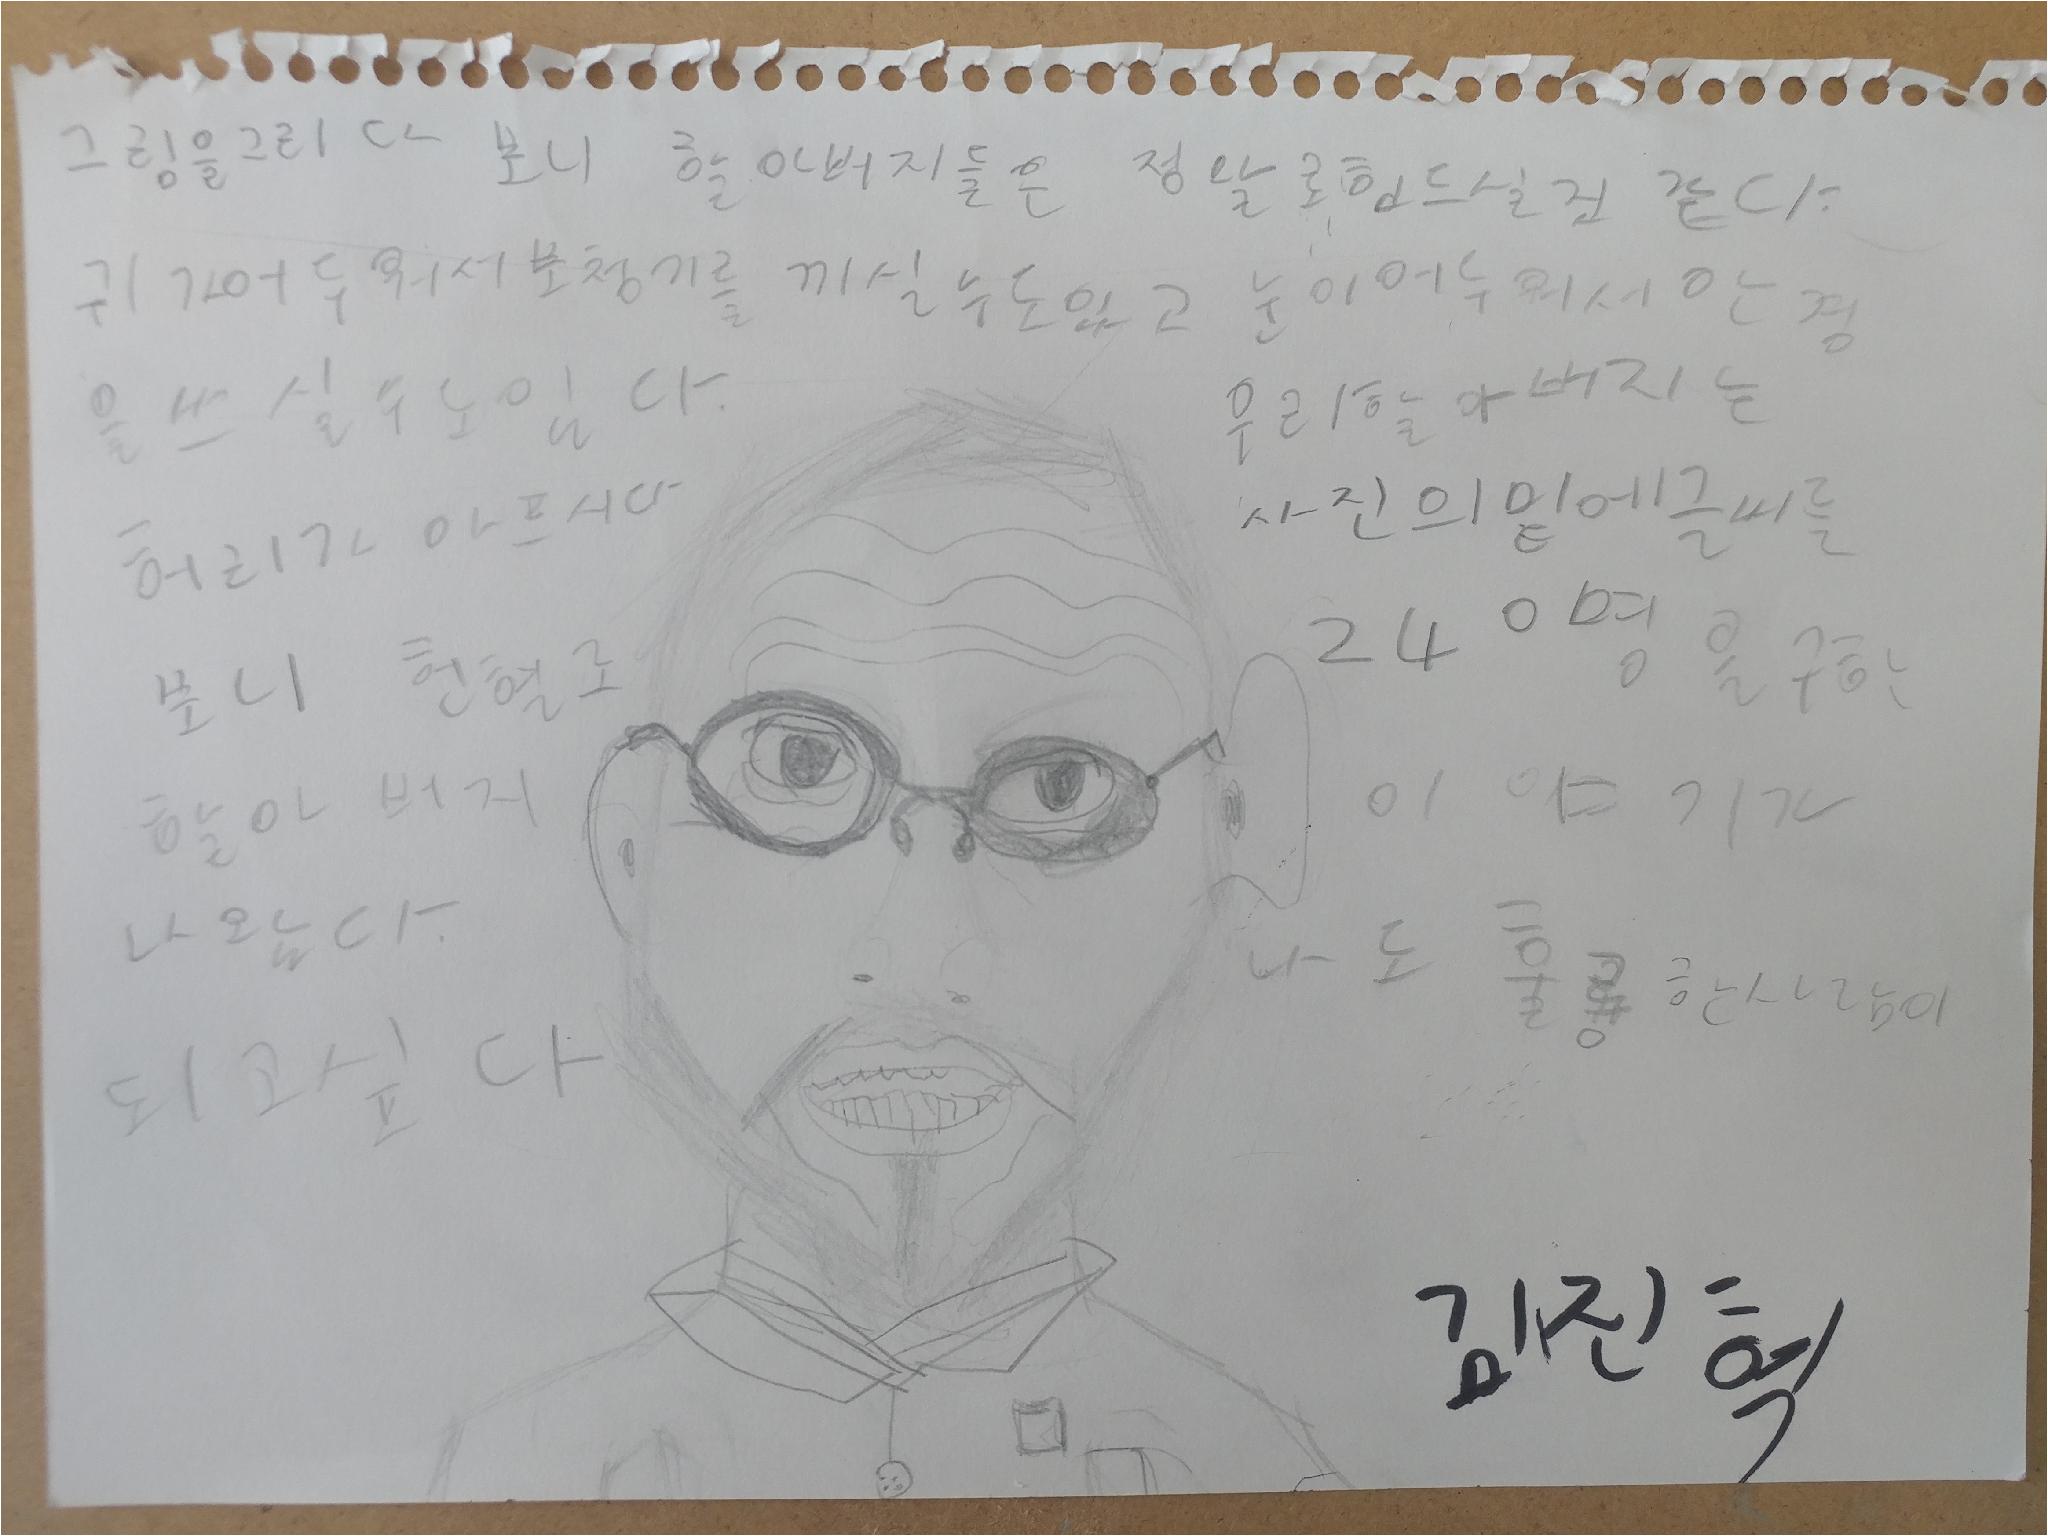 그림을그리다 보니 할아버지들은 정말로힘드실것 같다.
귀가어두워서보청기를 끼실수도있고 눈이어두워서안경
을쓰실수도있다.
우리할아버지는
허리가 아프시다
사진의밑에글씨를
보니 헌혈로
240명을구한
할아버지
이야기가
나왔다.
나도 훌륭한사람이
되고싶다
김진혁